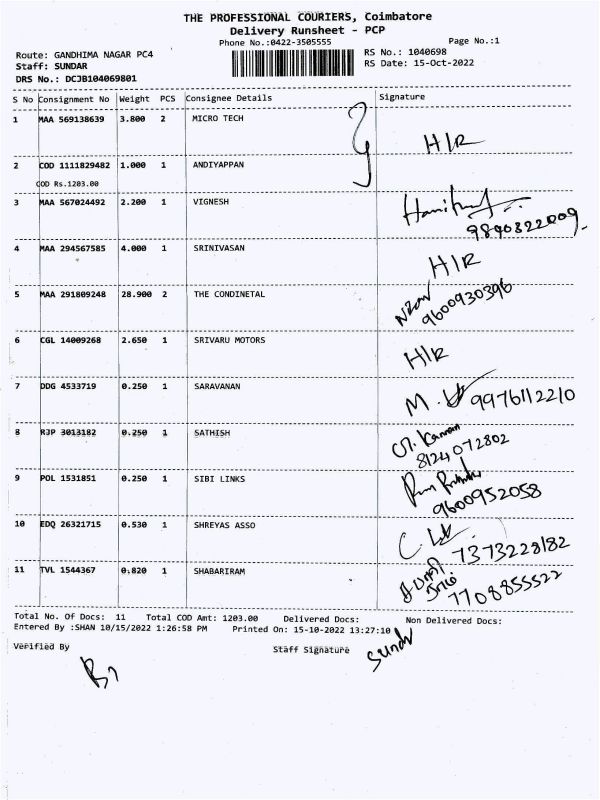 THE PROFESSIONAL COURIERS, Coimbatore
Delivery Runsheet - PCP
Phone No.:0422-3505555 Page No.:1
Route: GANDHIMA NAGAR PC4 RS No.: 1040698
Staff: SUNDAR RS Date: 15-Oct-2022
DRS No.: DCJB104069801
S No Consignment No Weight PCS Consignee Details Signature
1 MAA 569138639 3.800 2 MICRO TECH
H/R
2 COD 1111829482 1.000 1 ANDIYAPPAN
COD Rs.1203.00
3 MAA 567024492 2.200 1 VIGNESH
9840322009
4 MAA 294567585 4.000 1 SRINIVASAN
H/R
5 MAA 291809248 28.900 2 THE CONDINETAL
9600930396
6 CGL 14009268 2.650 1 SRIVARU MOTORS
H/R
7 DDG 4533719 0.250 1 SARAVANAN
M. 9976112210
8 RJP 3013182 0.250 1 SATHISH
8124072802
9 POL 1531851 0.250 1 SIBI LINKS
9600952058
10 EDQ 26321715 0.530 1 SHREYAS ASSO
7373228182
11 TVL 1544367 0.820 1 SHABARIRAM
7708855522
Total No. Of Docs: 11 Total COD Amt: 1203.00 Delivered Docs: Non Delivered Docs:
Entered By :SHAN 10/15/2022 1:26:58 PM Printed On: 15-10-2022 13:27:10
Verified By Staff Signature Sundar